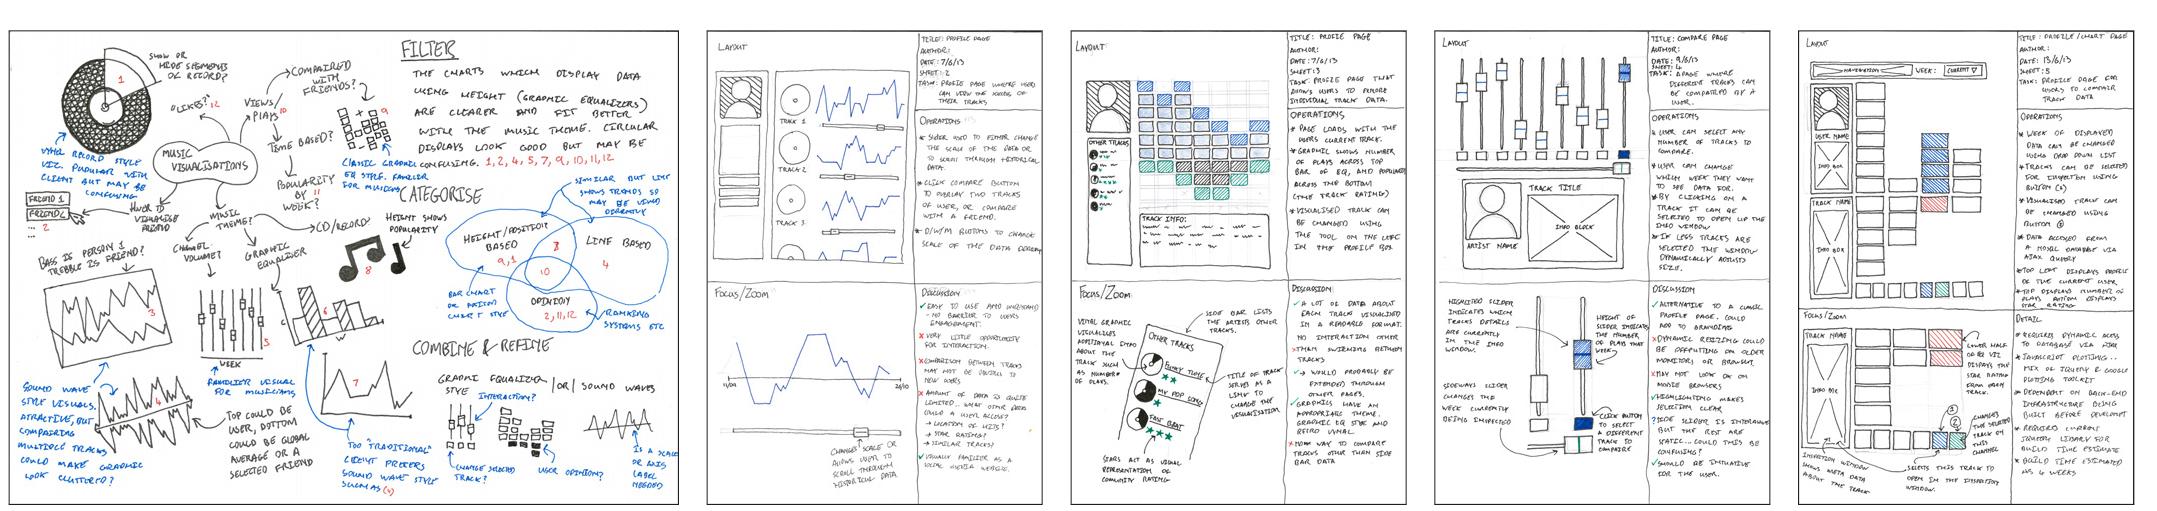 SHOW OR
HIDE SEGMENTS
OF RECORD?
1
"LIKES?" 12
VIEWS
PLAYS 10
COMPAIRED
WITH
FRIENDS?
9
TIME BASED?
MUSIC
VISUALISATIONS
VINYL RECORD STYLE
VIZ. POPULAR WITH
CLIENT BUT MAY BE
CONFUSING
CLASSIC GRAPHIC
EQ STYLE. FAMILIER
FOR MUSICIANS
POPULARITY
BY 11
WEEK?
FRIEND 1
FRIEND 2
2
HOW TO
VISUALISE
FRIEND
MUSIC
THEME?
CD/RECORD?
HEIGHT SHOWS
POPULARITY
8
CHANNEL
VOLUME?
GRAPHIC
EQUALIZER
BASS IS PERSON 1
TREBBLE IS FRIEND?
3
5
6
WEEK
FAMILIER VISUAL
FOR MUSICIANS
SOUND WAVE
STYLE VISUALS.
ATRACTIVE, BUT
COMPAIRING
MULTIPLE TRACKS
COULD MAKE GRAPHIC
LOOK CLUTTERED?
4
TOP COULD BE
USER, BOTTOM
COULD BE GLOBAL
AVERAGE OR A
SELECTED FRIEND
7
TOO "TRADITIONAL"
CLIENT PREFERS
SOUND WAVE STYLE
SUCH AS (4)
FILTER
THE CHARTS WHICH DISPLAY DATA
USING HEIGHT (GRAPHIC EQUALIZERS)
ARE CLEARER AND FIT BETTER
WITH THE MUSIC THEME. CIRCULAR
DISPLAYS LOOK GOOD BUT MAY BE
CONFUSING. 1, 2, 4, 5, 7, 9, 10, 11, 12
CATEGORISE
SIMILAR BUT LINE
SHOWS TRENDS SO
MAY BE VIEWED
DIFFERENTLY
HEIGHT/POSITION
BASED
9, 1
LINE BASED
4
10
OPINION
2, 11, 12
BAR CHART
OR POSITION
CHART STYLE
RANKING
SYSTEMS ETC
COMBINE & REFINE
GRAPHIC EQUALIZER /OR/ SOUND WAVES
STYLE
INTERACTION?
CHANGE SELECTED
TRACK?
USER OPINION?
IS A SCALE
OR AXIS
LABEL
NEEDED
LAYOUT
TRACK 1
TRACK 2
TRACK 3
TITLE: PROFILE PAGE
AUTHOR:
DATE: 7/6/13
SHEET: 2
TASK: PROFILE PAGE WHERE USER
CAN VIEW THE
THEIR TRACKS
OPERATIONS
* SLIDER USED TO EITHER CHANGE
THE SCALE OF THE DATA OR
TO SCROLL THROUGH HISTORICAL
DATA.
* CLICK COMPARE BUTTON
TO OVERLAY TWO TRACKS
OF USER, OR COMPARE
WITH A FRIEND.
* D/W/M BUTTONS TO CHANGE
SCALE OF THE DATA
FOCUS/ZOOM
CHANGES SCALE OR
ALLOWS USER TO
SCROLL THROUGH
HISTORICAL DATA
DISCUSSION
EASY TO USE AND UNDERSTAND
- NO BARRIER TO USERS
ENGAGEMENT.
VERY LITTLE OPPORTUNITY
FOR INTERACTION.
COMPARISON BETWEEN TRACKS
MAY NOT BE OBVIOUS TO
NEW USERS
AMOUNT OF DATA IS QUITE
LIMITED... WHAT OTHER DATA
COULD A USER ACCESS?
→ LOCATION OF HITS?
→ STAR RATING?
→ SIMILAR TRACKS?
VISUALLY FAMILIER AS A
SOCIAL MEDIA WEBSITE.
LAYOUT
OTHER TRACKS
TRACK INFO:
TITLE: PROFILE PAGE
AUTHOR:
DATE: 7/6/13
SHEET: 3
TASK: PROFILE PAGE THAT
ALLOWS USERS TO EXPLORE
INDIVIDUAL TRACK DATA.
OPERATIONS
* PAGE LOADS WITH THE
USERS CURRENT TRACK.
* GRAPHIC SHOWS NUMBER
OF PLAYS ACROSS TOP
BAR OF EQ, AND
ACROSS THE BOTTOM
(THE TRACK RATING)
* VISUALISED TRACK CAN
BE CHANGED USING
THE TOOL ON THE LEFT
IN THE PROFILE BOX.
FOCUS/ZOOM
VINYL GRAPHIC
VISUALIZES
ADDITIONAL INFO
ABOUT THE
TRACK SUCH
AS NUMBER
OF PLAYS.
SIDE BAR LISTS
THE ARTISTS OTHER
TRACKS
OTHER TRACKS
FUNKY TUNE
MY POP SONG
FAST BEAT
TITLE OF TRACK
SERVES AS A
LINK TO
CHANGE THE
VISUALISATION
STARS ACT AS VISUAL
REPRESENTATION OF
COMMUNITY RATING
DISCUSSION:
A LOT OF DATA ABOUT
EACH TRACK VISUALISED
IN A READABLE FORMAT.
NO INTERACTION OTHER
THAN SWITCHING BETWEEN
TRACKS
→ WOULD PROBABLY BE
EXTENDED THROUGH
OTHER PAGES.
GRAPHICS HAVE AN
APPROPRIATE THEME.
GRAPHIC EQ STYLE AND
RETRO VINYL.
WAY TO COMPARE
TRACKS OTHER THAN SIDE
BAR DATA
LAYOUT
TRACK TITLE
INFO BLOCK
ARTIST NAME
TITLE: COMPARE PAGE
AUTHOR:
DATE: 9/6/13
SHEET: 4
TASK: A PAGE WHERE
DIFFERENT TRACKS CAN
BE COMPAIRED BY A
USER.
OPERATIONS
* USER CAN SELECT ANY
NUMBER OF TRACKS TO
COMPARE.
* USER CAN CHANGE
WHICH WEEK THEY WANT
TO SEE DATA FOR.
* BY CLICKING ON A
TRACK IT CAN BE
SELECTED TO OPEN UP THE
INFO WINDOW
* IF LESS TRACKS ARE
SELECTED THE WINDOW
DYNAMICALLY ADJUSTS
SIZE.
HIGHLITED SLIDER
INDICATES WHICH
TRACKS DETAILS
ARE CURRENTLY
IN THE INFO
WINDOW.
HEIGHT OF
SLIDER INDICATES
THE NUMBER
OF PLAYS THAT
WEEK
SIDEWAYS SLIDER
CHANGES THE
WEEK CURRENTLY
BEING INSPECTED
CLICK BUTTON
TO SELECT
A DIFFERENT
TRACK TO
COMPAIRE
DISCUSSION
ALTERNATIVE TO A CLASSIC
PROFILE PAGE. COULD
ADD TO BRANDING
DYNAMIC RESIZING COULD
BE OFFPUTTING ON OLDER
MONITORS OR BROWSERS.
MAY NOT LOOK OK ON
MOBILE BROWSERS
HIGHLIGHTING MAKES
SELECTION CLEAR
? SIDE SLIDER IS INTERACTIVE
BUT THE REST ARE
STATIC... COULD THIS BE
CONFUSING?
SHOULD BE INTUITIVE
FOR THE USER.
LAYOUT
NAVIGATION WEEK: CURRENT
USER NAME
INFO BOX
TRACK NAME
INFO BOX
TITLE: PROFILE/CHART PAGE
AUTHOR:
DATE: 13/6/13
SHEET: 5
TASK: PROFILE PAGE FOR
USERS TO COMPAIR
TRACK DATA
OPERATIONS
* WEEK OF DISPLAYED
DATA CAN BE CHANGED
USING DROP DOWN LIST
* TRACKS CAN BE SELECTED
FOR INSPECTION USING
BUTTON (2)
* VISUALISED TRACK CAN
BE CHANGED USING
BUTTON (1)
* DATA ACCESSED FROM
A MYSQL DATABASE VIA
AJAX QUERY
* TOP LEFT DISPLAYS PROFILE
OF THE CURRENT USER
* TOP DISPLAYS NUMBER OF
PLAYS BOTTOM DISPLAYS
STAR RATING
FOCUS/ZOOM
TRACK NAME
INFO BOX
LOWER HALF
OF EQ VIZ
DISPLAYS THE
STAR RATING
FROM EACH
TRACK.
1
2
CHANGES
THE SELECTED
TRACK ON
THIS
CHANNEL
INSPECTION WINDOW
SHOWS META DATA
ABOUT THE TRACK
SELECTS THIS TRACK TO
OPEN IN THE INSPECTION
WINDOW.
DETAIL
* REQUIRES DYNAMIC ACCESS
TO DATABASE VIA AJAX
* JAVASCRIPT PLOTTING..
MIX OF JQUERY & GOOGLE
PLOTTING TOOLKIT
* DEPENDENT ON BACK-END
INFRASTRUCTURE BEING
BUILT BEFORE DEVELOPMENT
* REQUIRES CURRENT
JQUERY LIBRARY FOR
BUILD TIME ESTIMATE
* BUILD TIME ESTIMATED
AS 6 WEEKS